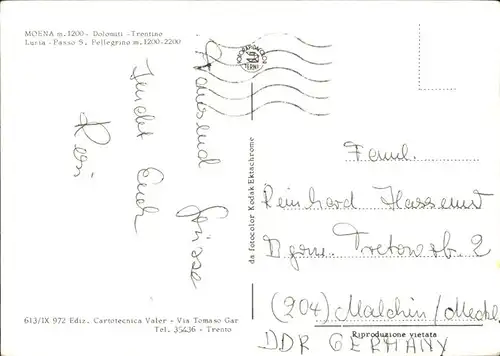 MOENA m. 1200 - Dolomiti - Trentino
Lusia - Passo S. Pellegrino m. 1200-2200
Tausend
Grüsse
sendet Euch
Rosi
da fotocolor Kodak Ektachrome
Faml.
Reinhard
2
(204) Malchin/Meckl.
DDR GERMANY
613/IX 972 Ediz. Cartotecnica Valer - Via Tomaso Gar
Tel. 35436 - Trento
Riproduzione vietata